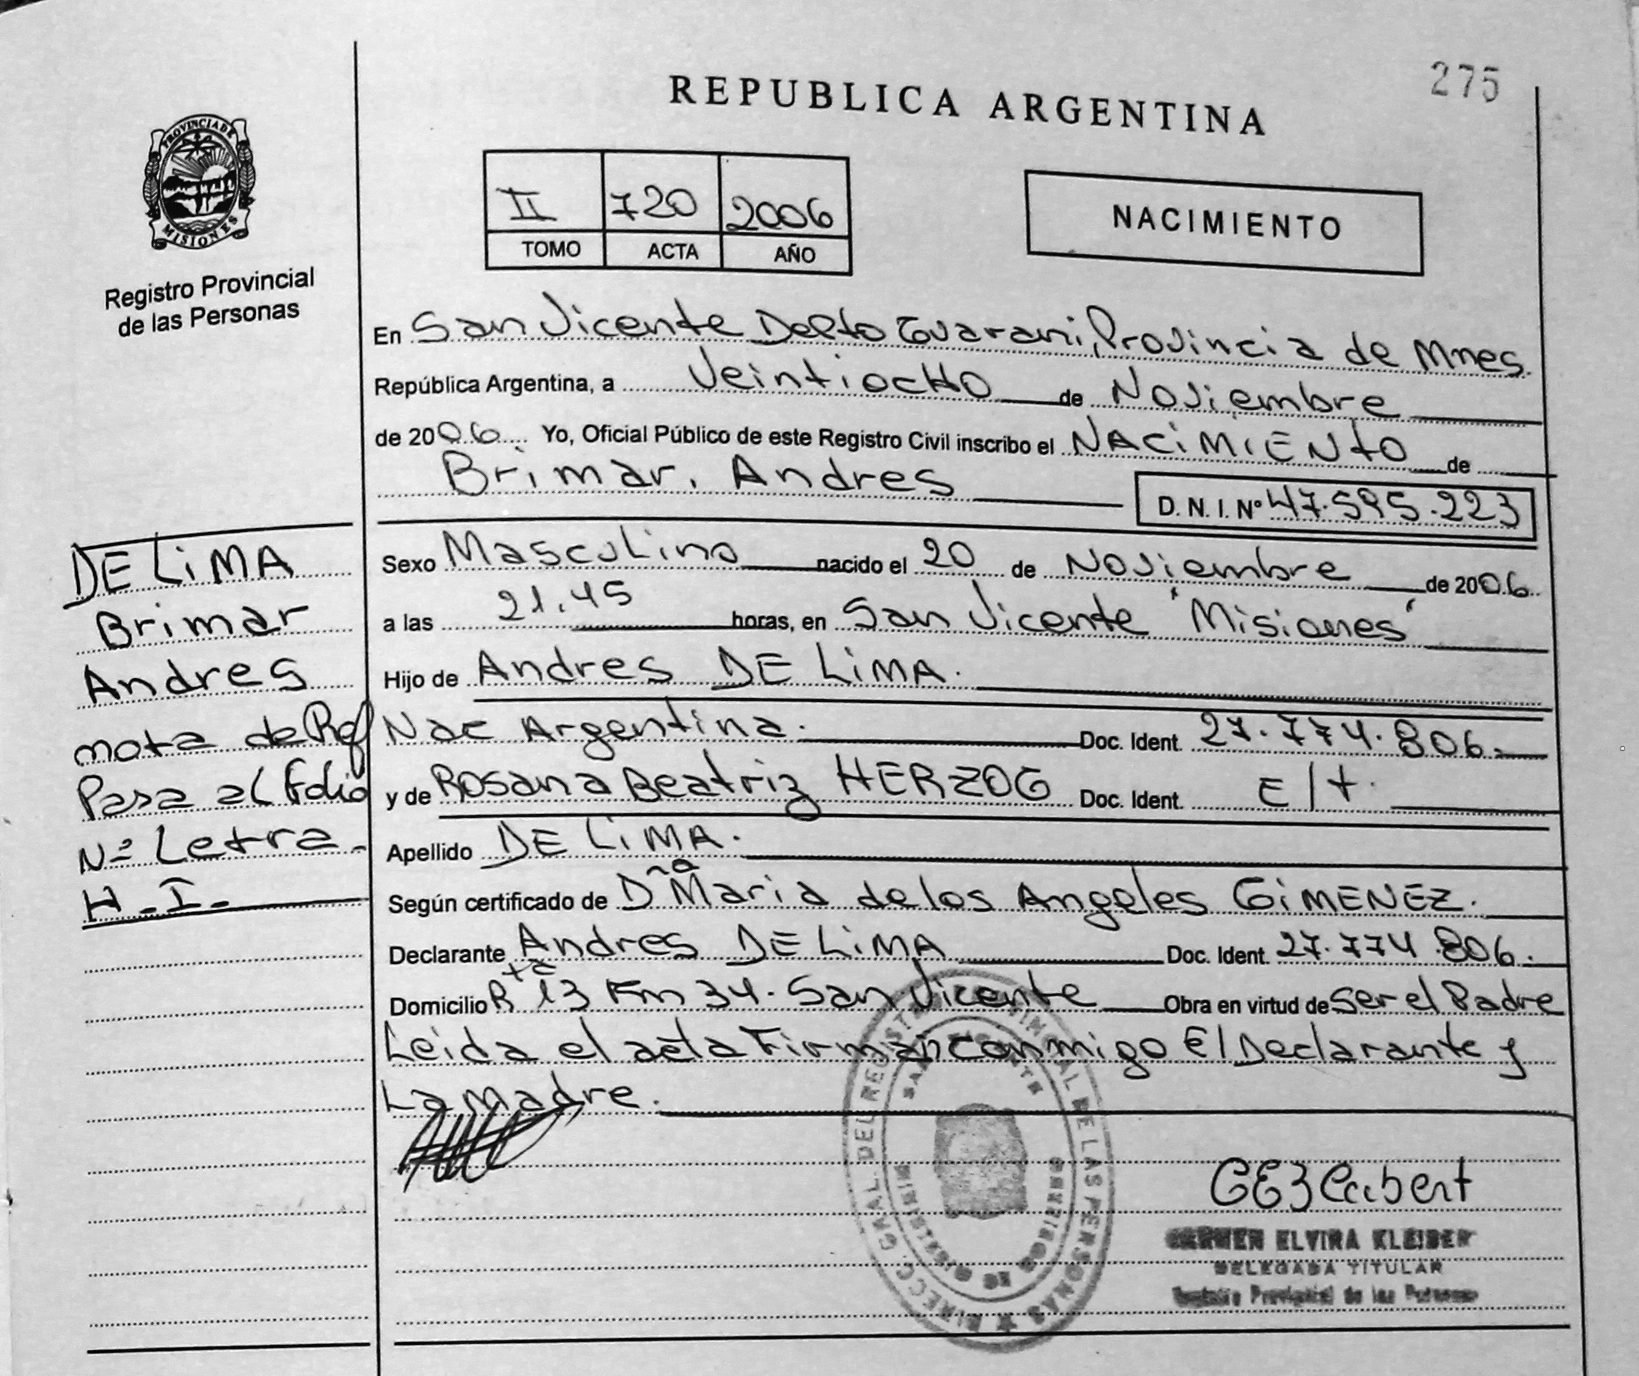 275
REPUBLICA ARGENTINA
PROVINCIA DE
MISIONES
Registro Provincial
de las Personas
II 720 2006
TOMO ACTA AÑO
NACIMIENTO
En San Vicente Depto Guarani, Provincia de Mnes.
República Argentina, a Veintiocho de Noviembre
de 2006 Yo, Oficial Público de este Registro Civil inscribo el NACIMIENTO de
Brimar, Andres
D. N. I. Nº 47.595.223
DE LIMA
Brimar
Andres
nota de Ref
Pasa al folio
Nº Letra
H.I.
Sexo Masculino nacido el 20 de Noviembre de 2006.
a las 21.45 horas, en San Vicente 'Misiones'
Hijo de Andres DE LIMA.
Nac Argentina. Doc. Ident. 27.774.806.
y de Rosana Beatriz HERZOG Doc. Ident. E/t.
Apellido DE LIMA.
Según certificado de Dña Maria de los Angeles GIMENEZ.
Declarante Andres DE LIMA Doc. Ident. 27.774.806.
Domicilio Rta 13 Km 34. San Vicente Obra en virtud de ser el Padre
Leida el acta Firman conmigo El Declarante y
La Madre.
DIRECC. GRAL. DEL REGISTRO PROVINCIAL DE LAS PERSONAS
SAN VICENTE
MINISTERIO DE GOBIERNO
CARMEN ELVIRA KLEIBER
DELEGADA TITULAR
Registro Provincial de las Personas